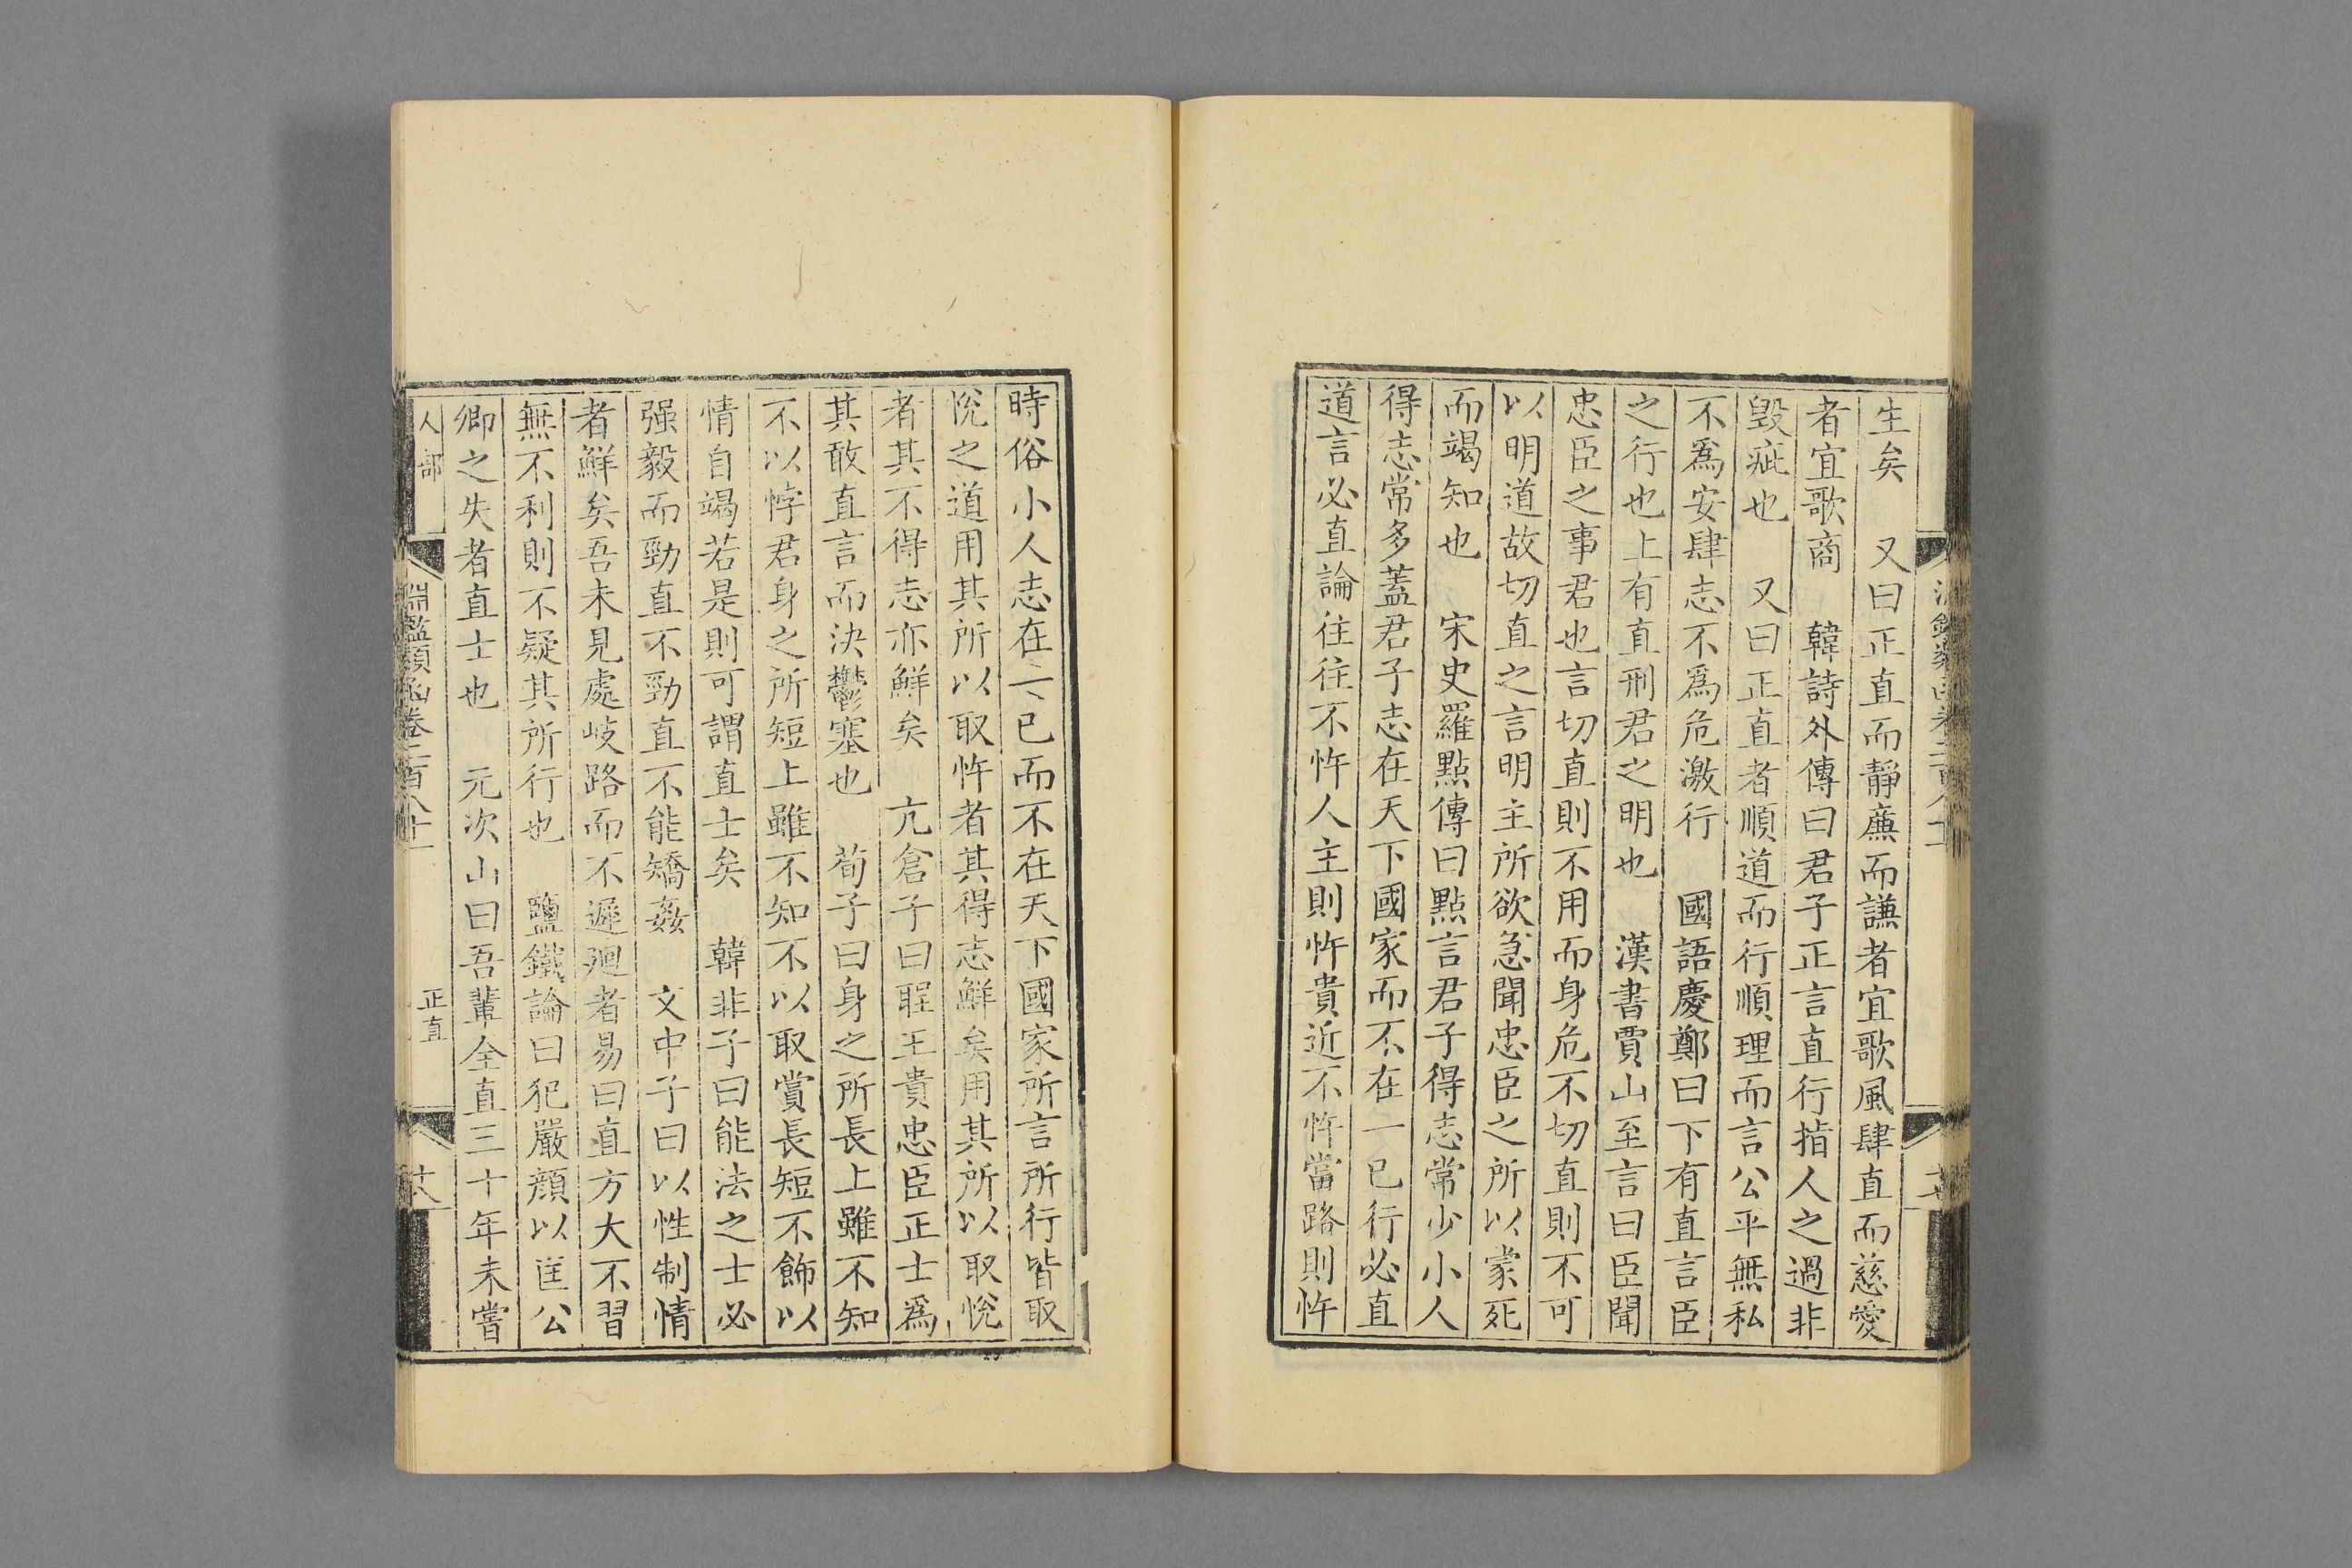 生矣　又曰正直而靜廉而謙者宜歌風肆直而慈愛
者宜歌商　韓詩外傳曰君子正言直行指人之過非
毀疵也　又曰正直者順道而行順理而言公平無私
不爲安肆志不爲危激行　國語慶鄭曰下有直言臣
之行也上有直刑君之明也　漢書賈山至言曰臣聞
忠臣之事君也言切直則不用而身危不切直則不可
以明道故切直之言明主所欲急聞忠臣之所以蒙死
而竭知也　宋史羅點傳曰點言君子得志常少小人
得志常多蓋君子志在天下國家而不在一已行必直
道言必直論往往不忤人主則忤貴近不忤當路則忤
時俗小人志在一已而不在天下國家所言所行皆取
悅之道用其所以取忤者其得志鮮矣用其所以取悅
者其不得志亦鮮矣　亢倉子曰聖王貴忠臣正士爲
其敢直言而決鬱塞也　荀子曰身之所長上雖不知
不以悖君身之所短上雖不知不以取賞長短不飾以
情自竭若是則可謂直士矣　韓非子曰能法之士必
强毅而勁直不勁直不能矯姦　文中子曰以性制情
者鮮矣吾未見處岐路而不遲廻者易曰直方大不習
無不利則不疑其所行也　鹽鐵論曰犯嚴顏以匡公
卿之失者直士也　元次山曰吾輩全直三十年未嘗
人部　淵鑑類函卷二百八十一　正直